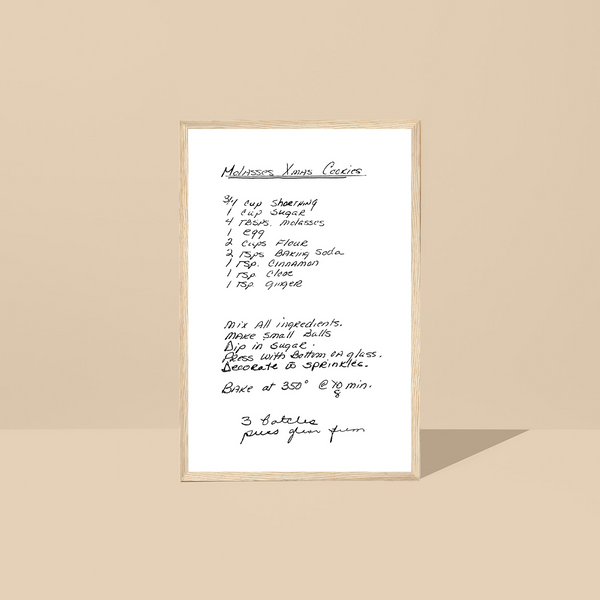 Molasses Xmas Cookies
3/4 cup shortning
1 cup sugar
4 TBSPS. molasses
1 egg
2 cups flour
2 TSPS Baking Soda
1 TSP. Cinnamon
1 TSP. Clove
1 TSP. ginger
Mix All ingredients.
Make small balls
Dip in sugar.
Press with Bottom of glass.
Decorate w sprinkles.
Bake at 350° @ 10 min.
8
3 batches